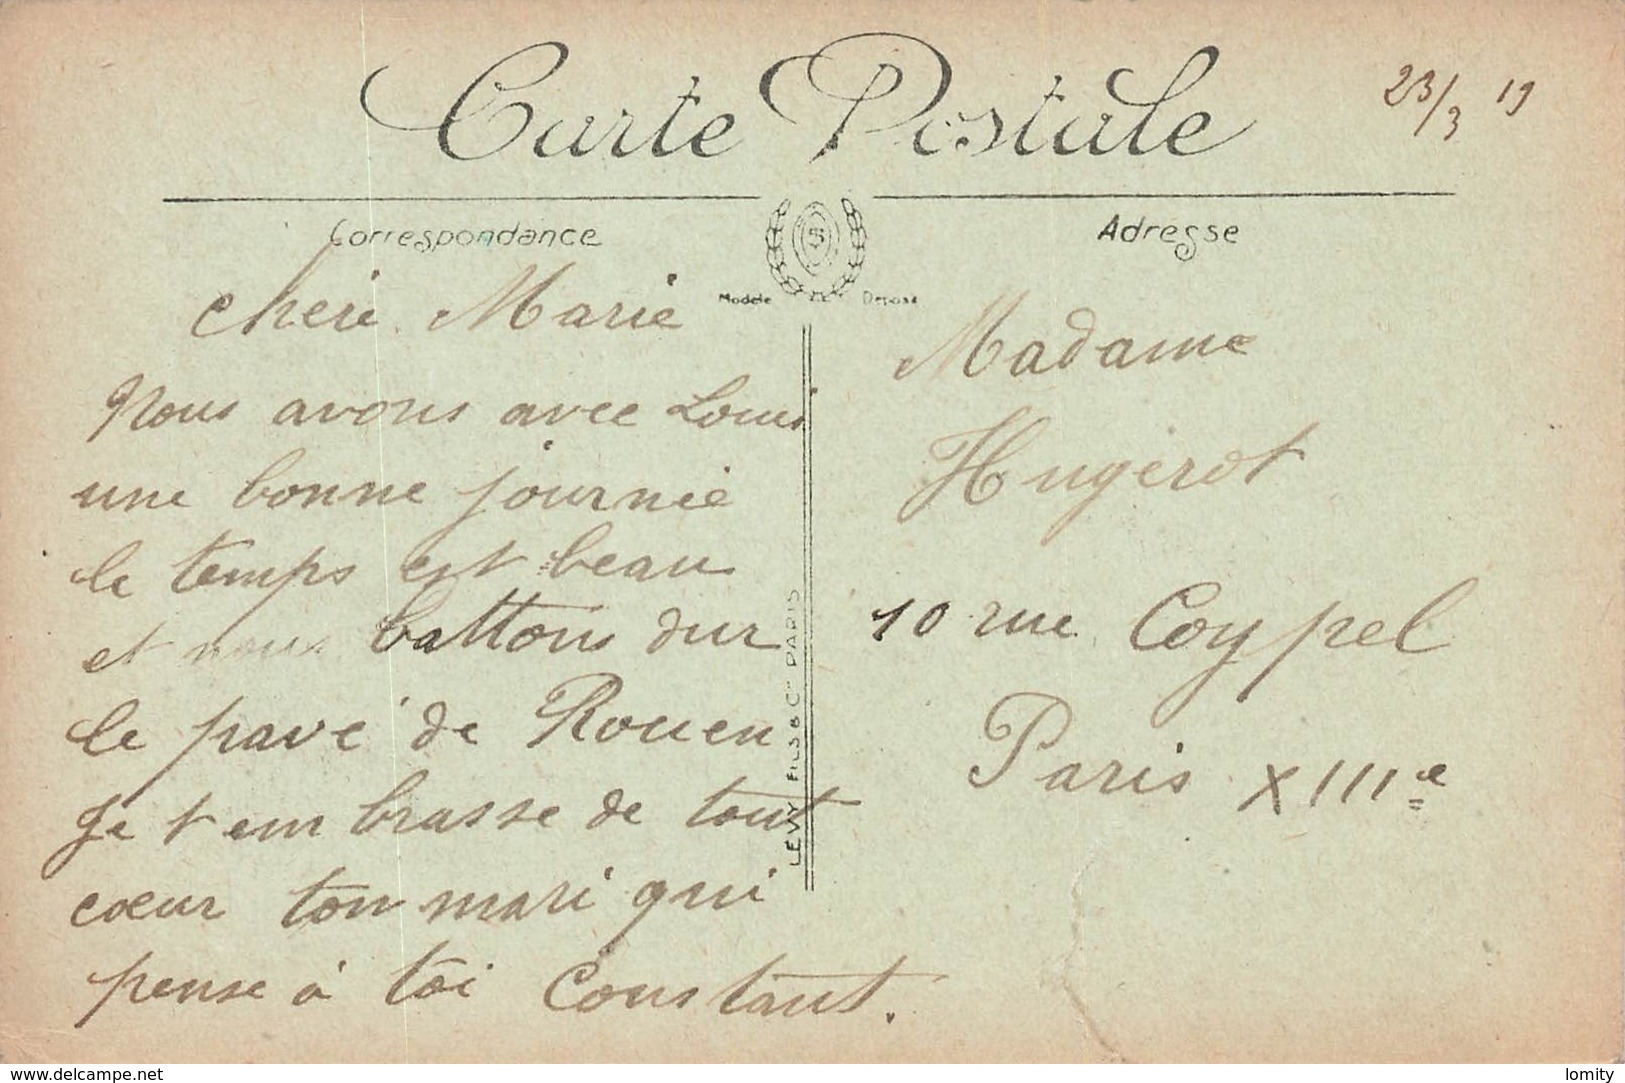 Carte Postale
23/3 19
Correspondance
Adresse
Modèle
Déposé
cheri Marie
Nous avons avec Louis
une bonne journie
le temps est beau
et nous battons dur
le pavé de Rouen
Je t'embrasse de tout
cœur ton mari qui
pense à toi Constant.
LEVY FILS & Cie PARIS
Madame
Hugerot
10 rue Coypel
Paris XIIIe
www.delcampe.net
lomity